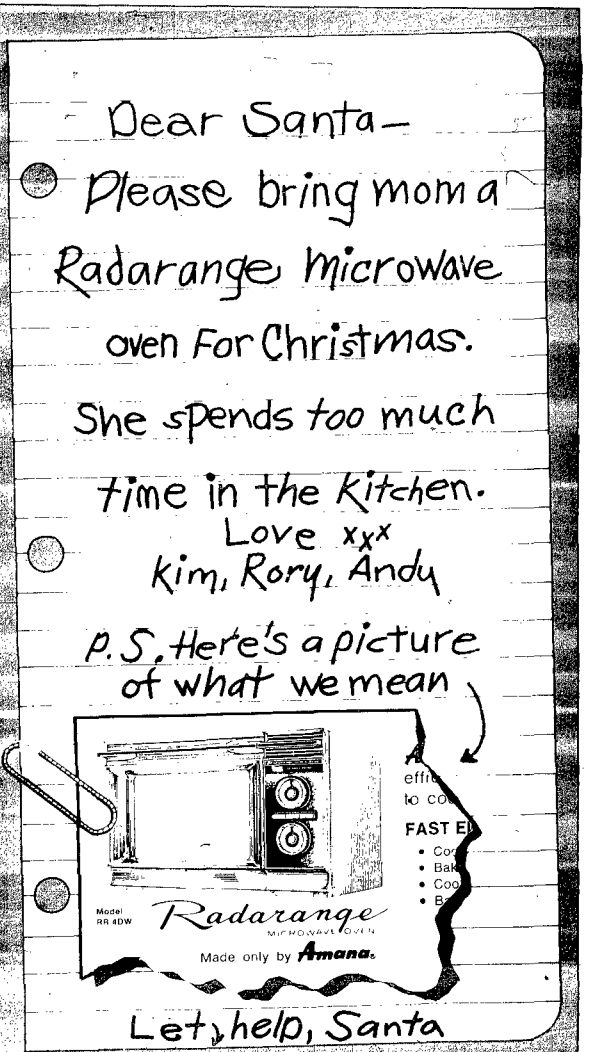 Dear Santa—
Please bring mom a
Radarange Microwave
oven For Christmas.
She spends too much
time in the Kitchen.
Love xxx
Kim, Rory, Andy
P.S. Here's a picture
of what we mean
A
effi
to co
FAST E
• Co
• Bak
• Coo
• Ba
Model
RR 4DW
Radarange
MICROWAVE OVEN
Made only by Amana®
Let, help, Santa